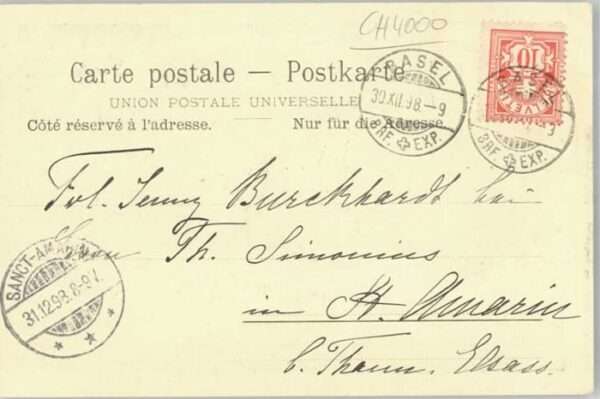 CH4000
BASEL
30.XII.98.-9
BRF. EXP.
10
HELVETIA
Carte postale — Postkarte
UNION POSTALE UNIVERSELLE
Côté réservé à l'adresse. Nur für die Adresse.
Frl. Jenny Burckhardt bei
Th. Simonius
in St. Amarin
b. Thann. Elsass.
SANCT-AMARIN
31.12.98.8-9V.